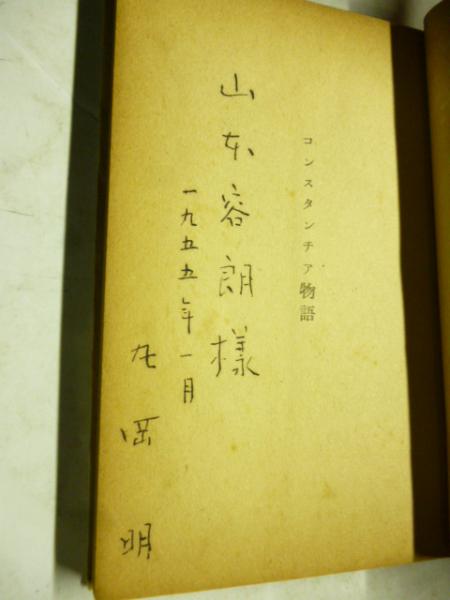 コンスタンチア物語
山本容朗様
一九五五年一月
丸岡 明